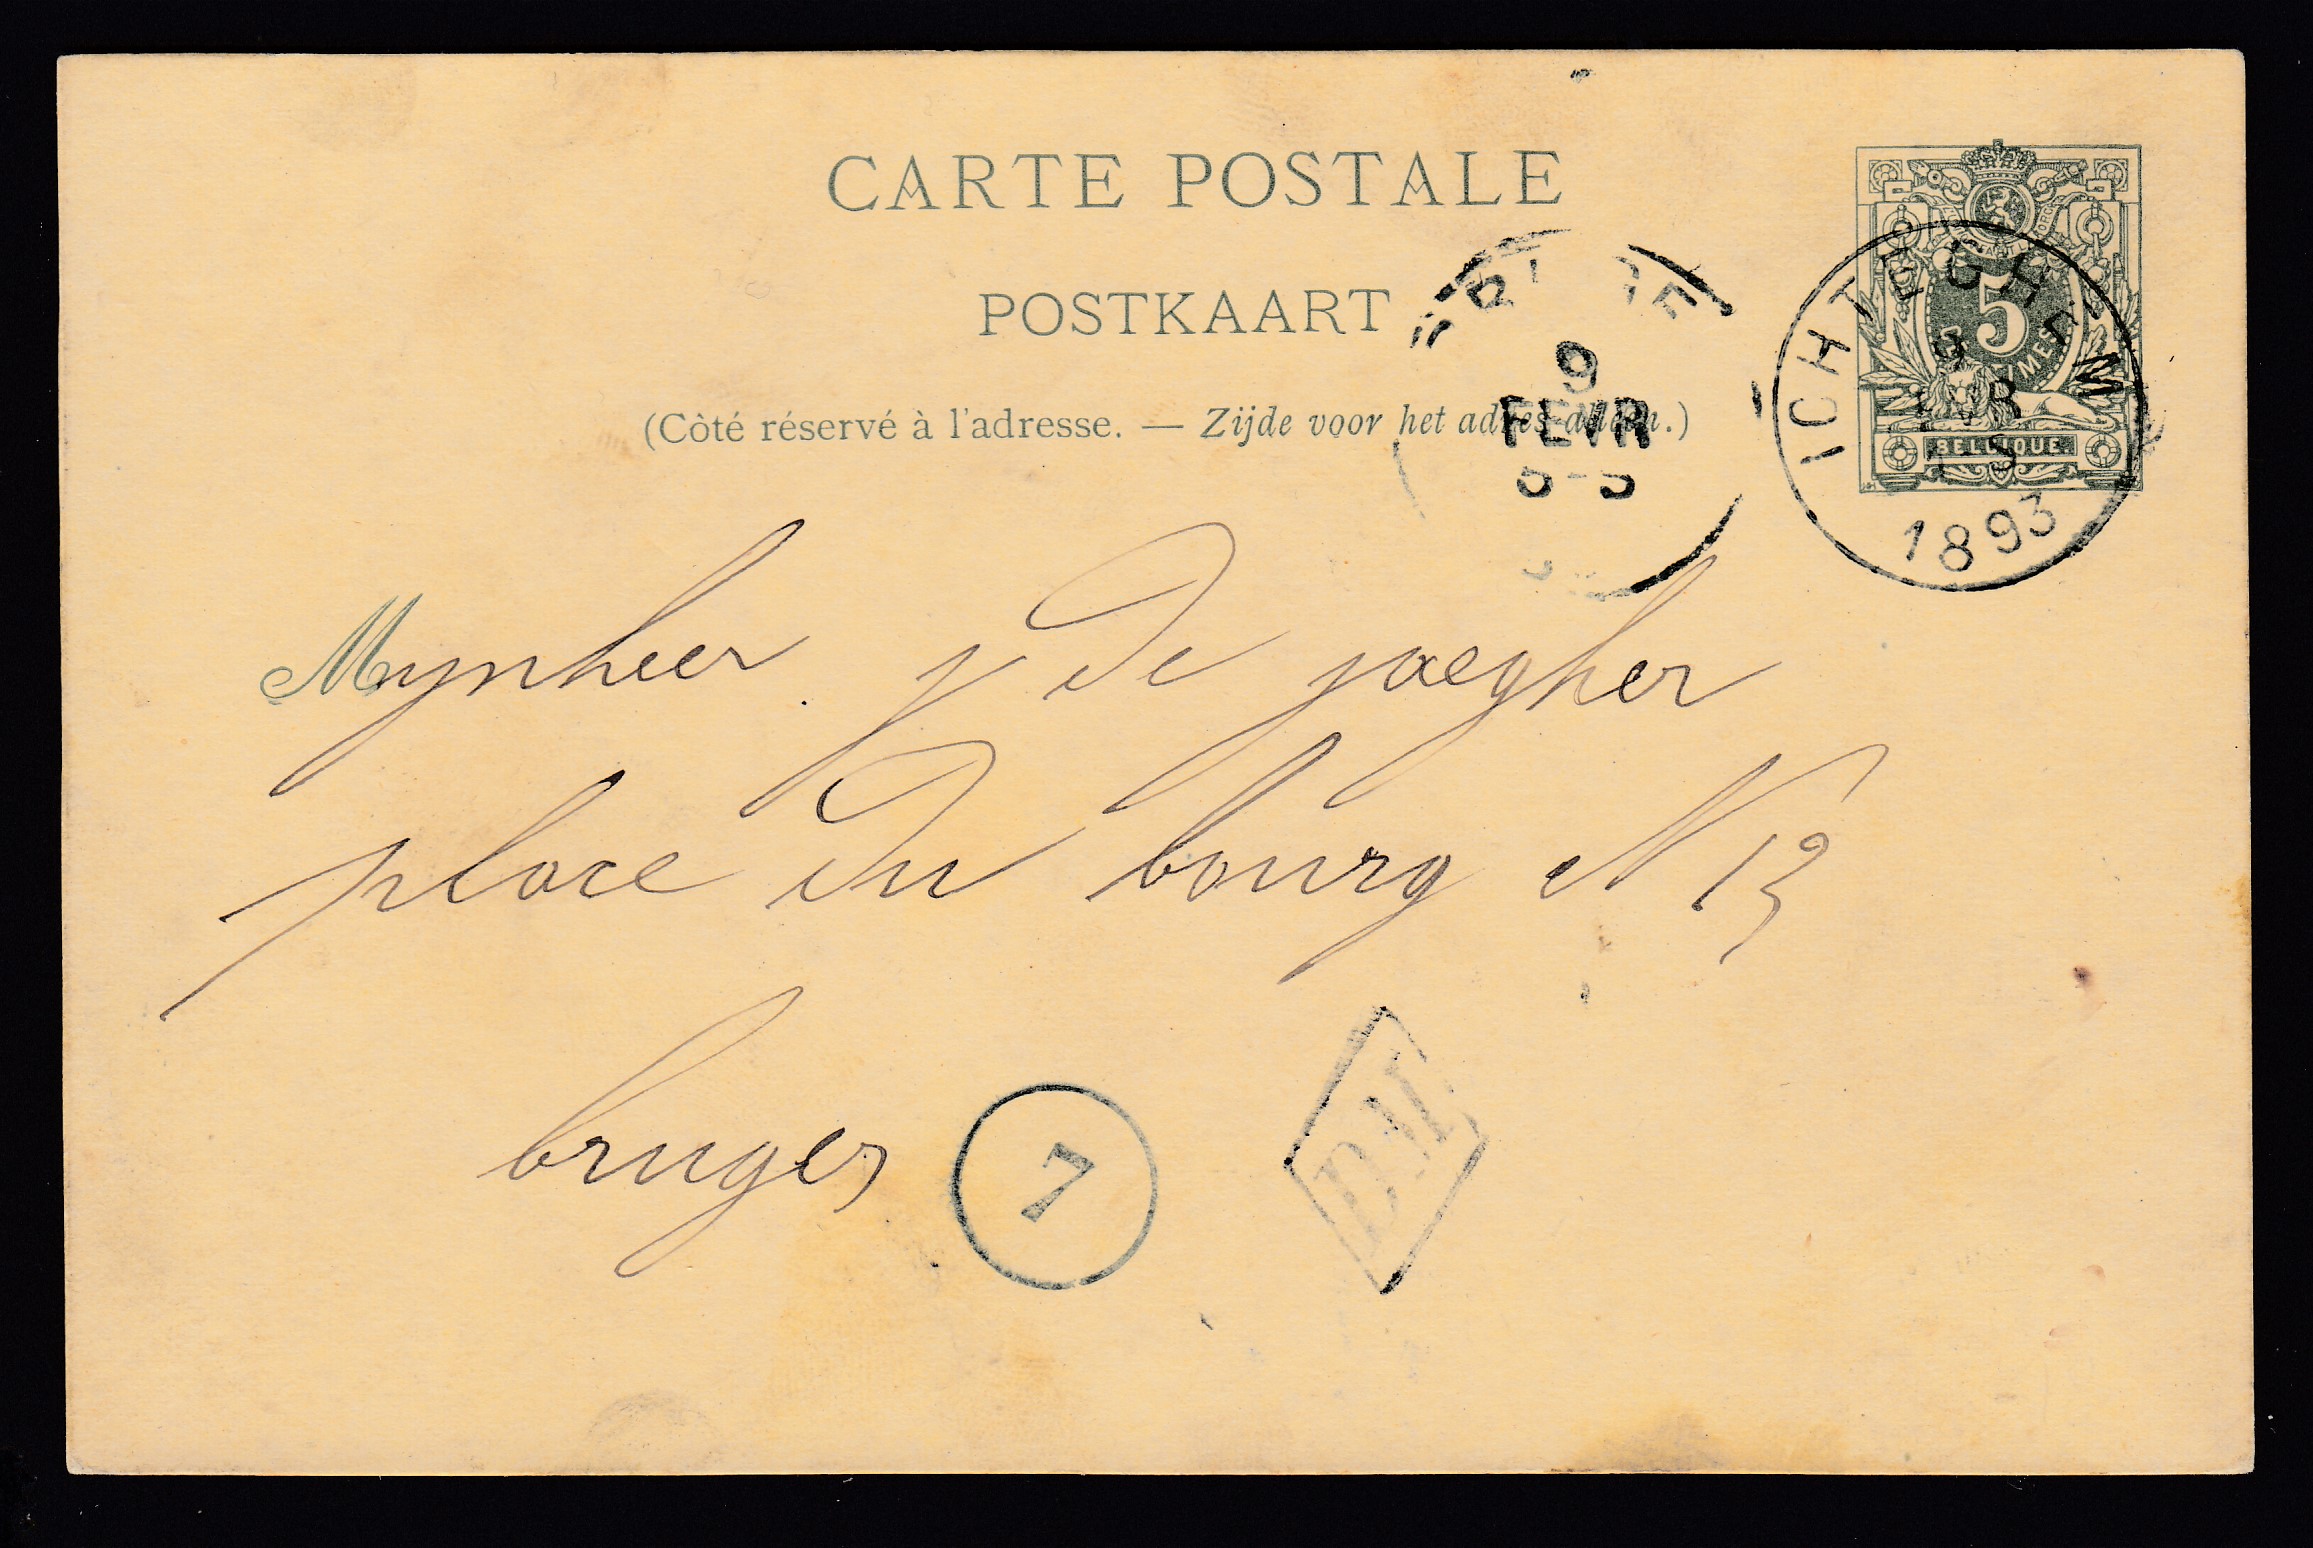 CARTE POSTALE
POSTKAART
(Côté réservé à l'adresse. — Zijde voor het adres alleen.)
5
BELGIQUE
ICHTEGHEM
9
1893
9
FEVR
Mynheer j De jaegher
place du bourg N 13
bruges
7